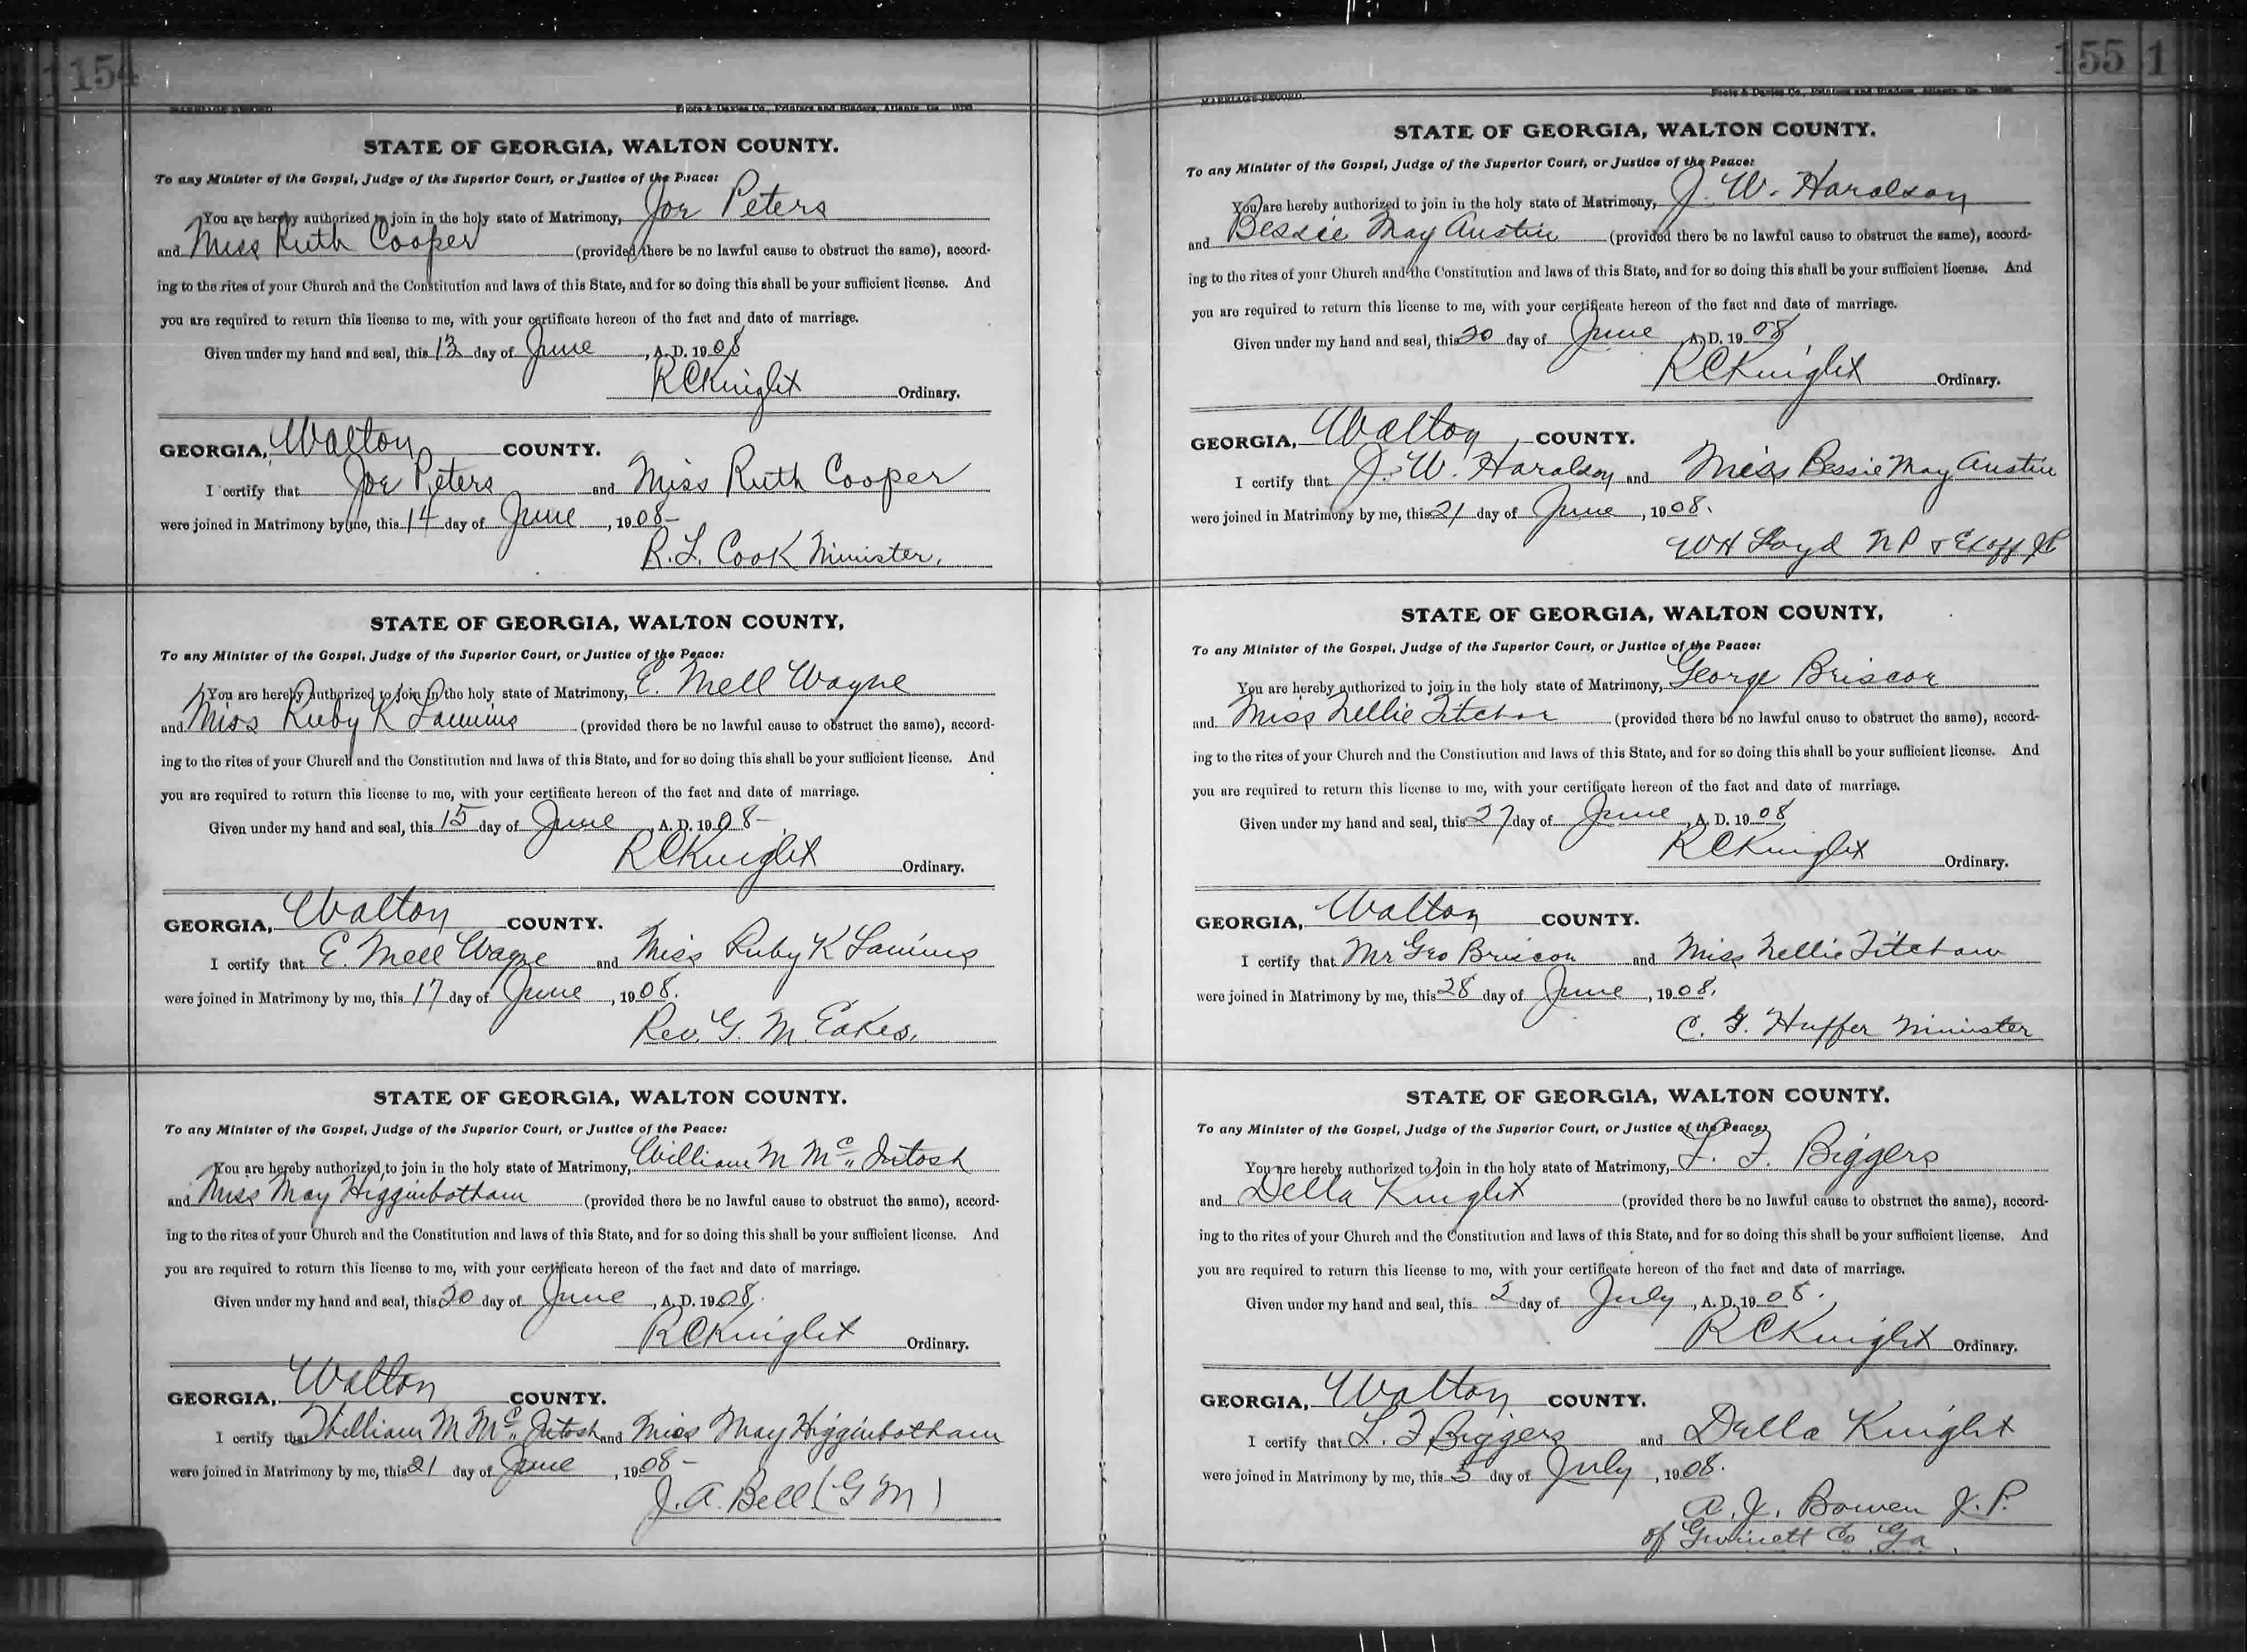 154
MARRIAGE RECORD. Foote & Davies Co., Printers and Binders, Atlanta, Ga.
STATE OF GEORGIA, WALTON COUNTY.
To any Minister of the Gospel, Judge of the Superior Court, or Justice of the Peace:
You are hereby authorized to join in the holy state of Matrimony, Joe Peters
and Miss Ruth Cooper (provided there be no lawful cause to obstruct the same), accord-
ing to the rites of your Church and the Constitution and laws of this State, and for so doing this shall be your sufficient license. And
you are required to return this license to me, with your certificate hereon of the fact and date of marriage.
Given under my hand and seal, this 13 day of June, A. D. 1908
R C Knight Ordinary.
GEORGIA, Walton COUNTY.
I certify that Joe Peters and Miss Ruth Cooper
were joined in Matrimony by me, this 14 day of June, 1908-
R. L. Cook Minister.
STATE OF GEORGIA, WALTON COUNTY,
To any Minister of the Gospel, Judge of the Superior Court, or Justice of the Peace:
You are hereby authorized to join in the holy state of Matrimony, E. Mell Wayne
and Miss Ruby K (provided there be no lawful cause to obstruct the same), accord-
ing to the rites of your Church and the Constitution and laws of this State, and for so doing this shall be your sufficient license. And
you are required to return this license to me, with your certificate hereon of the fact and date of marriage.
Given under my hand and seal, this 15 day of June, A. D. 1908-
R C Knight Ordinary.
GEORGIA, Walton COUNTY.
I certify that E. Mell Wayne and Miss Ruby K
were joined in Matrimony by me, this 17 day of June, 1908.
Rev. G. M. Eakes.
STATE OF GEORGIA, WALTON COUNTY.
To any Minister of the Gospel, Judge of the Superior Court, or Justice of the Peace:
You are hereby authorized to join in the holy state of Matrimony, William M McIntosh
and Miss May Higginbotham (provided there be no lawful cause to obstruct the same), accord-
ing to the rites of your Church and the Constitution and laws of this State, and for so doing this shall be your sufficient license. And
you are required to return this license to me, with your certificate hereon of the fact and date of marriage.
Given under my hand and seal, this 20 day of June, A. D. 1908.
R C Knight Ordinary.
GEORGIA, Walton COUNTY.
I certify that William M McIntosh and Miss May Higginbotham
were joined in Matrimony by me, this 21 day of June, 1908-
J. A. Bell (G M)
155 1
MARRIAGE RECORD. Foote & Davies Co., Printers and Binders, Atlanta, Ga.
STATE OF GEORGIA, WALTON COUNTY.
To any Minister of the Gospel, Judge of the Superior Court, or Justice of the Peace:
You are hereby authorized to join in the holy state of Matrimony, J. W. Haralson
and Bessie May Austin (provided there be no lawful cause to obstruct the same), accord-
ing to the rites of your Church and the Constitution and laws of this State, and for so doing this shall be your sufficient license. And
you are required to return this license to me, with your certificate hereon of the fact and date of marriage.
Given under my hand and seal, this 20 day of June, A. D. 1908
R C Knight Ordinary.
GEORGIA, Walton COUNTY.
I certify that J. W. Haralson and Miss Bessie May Austin
were joined in Matrimony by me, this 21 day of June, 1908.
W H Loyd N P & Exoff J P
STATE OF GEORGIA, WALTON COUNTY,
To any Minister of the Gospel, Judge of the Superior Court, or Justice of the Peace:
You are hereby authorized to join in the holy state of Matrimony, George Briscoe
and Miss Nellie (provided there be no lawful cause to obstruct the same), accord-
ing to the rites of your Church and the Constitution and laws of this State, and for so doing this shall be your sufficient license. And
you are required to return this license to me, with your certificate hereon of the fact and date of marriage.
Given under my hand and seal, this 27 day of June, A. D. 1908
R C Knight Ordinary.
GEORGIA, Walton COUNTY.
I certify that Mr Geo Briscoe and Miss Nellie
were joined in Matrimony by me, this 28 day of June, 1908.
Huffer Minister
STATE OF GEORGIA, WALTON COUNTY.
To any Minister of the Gospel, Judge of the Superior Court, or Justice of the Peace:
You are hereby authorized to join in the holy state of Matrimony, L. F. Biggers
and Della Knight (provided there be no lawful cause to obstruct the same), accord-
ing to the rites of your Church and the Constitution and laws of this State, and for so doing this shall be your sufficient license. And
you are required to return this license to me, with your certificate hereon of the fact and date of marriage.
Given under my hand and seal, this 2 day of July, A. D. 1908.
R C Knight Ordinary.
GEORGIA, Walton COUNTY.
I certify that L. F Biggers and Della Knight
were joined in Matrimony by me, this 5 day of July, 1908.
A. J. Bowen J. P.
of Gwinett Co Ga.